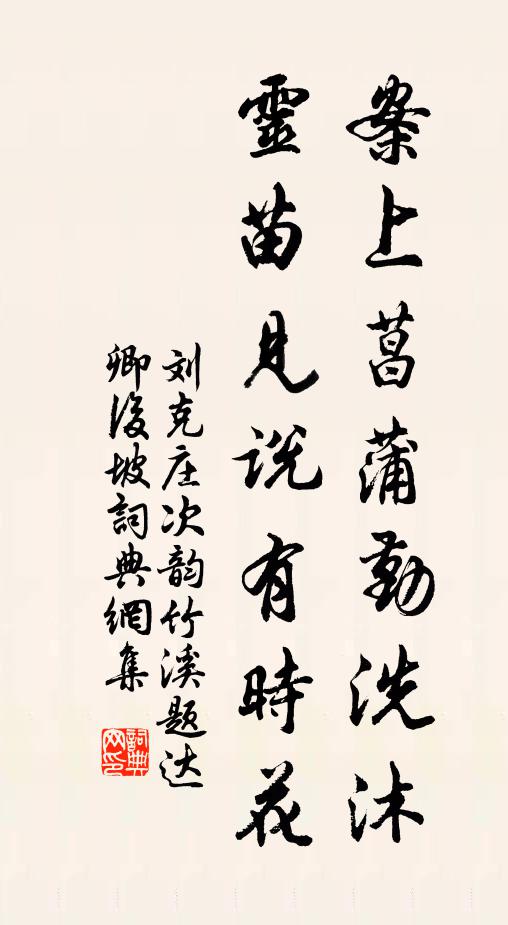 案上菖蒲勤洗沐
靈苗見説有時花
刘克庄次韵竹溪题达
卿後坡詞典網集
詞典网印